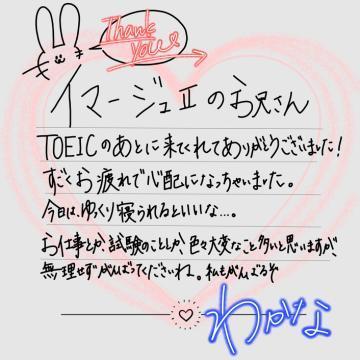 Thank you
イマージュⅡのお兄さん
TOEICのあとに来てくれてありがとうございました!
すごくお疲れで心配になっちゃいました。
今日は、ゆっくり寝られるといいな…。
お仕事とか、試験のことしか、色々大変なこと多いと思いますが、
無理せずがんばってくださいね。私もがんばるぞ
わかな